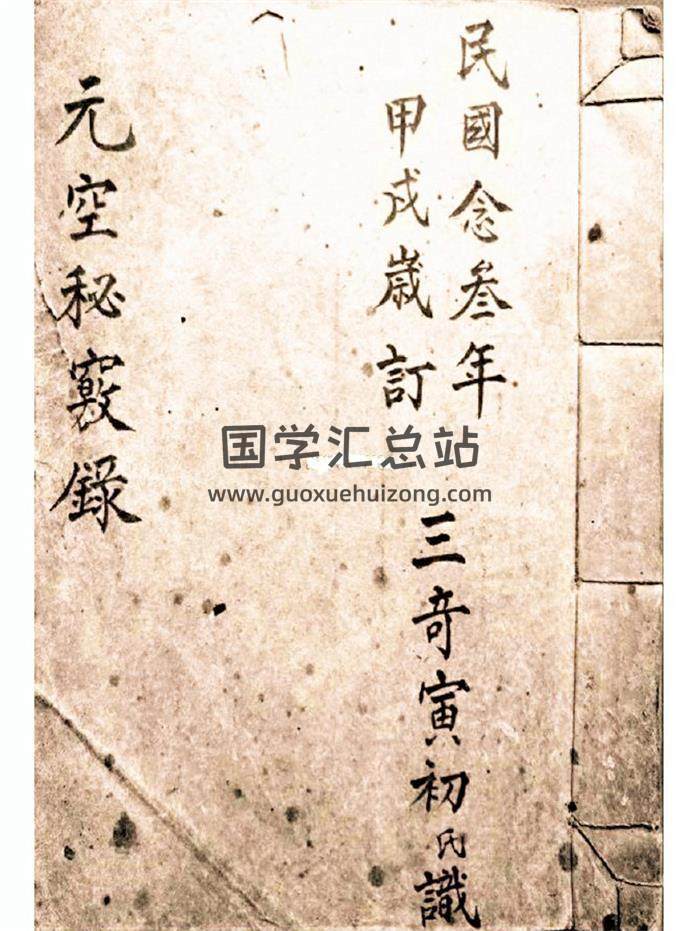 民國念叁年
甲戌歲訂
三奇寅初氏識
元空秘竅錄
国学汇总站
www.guoxuehuizong.com